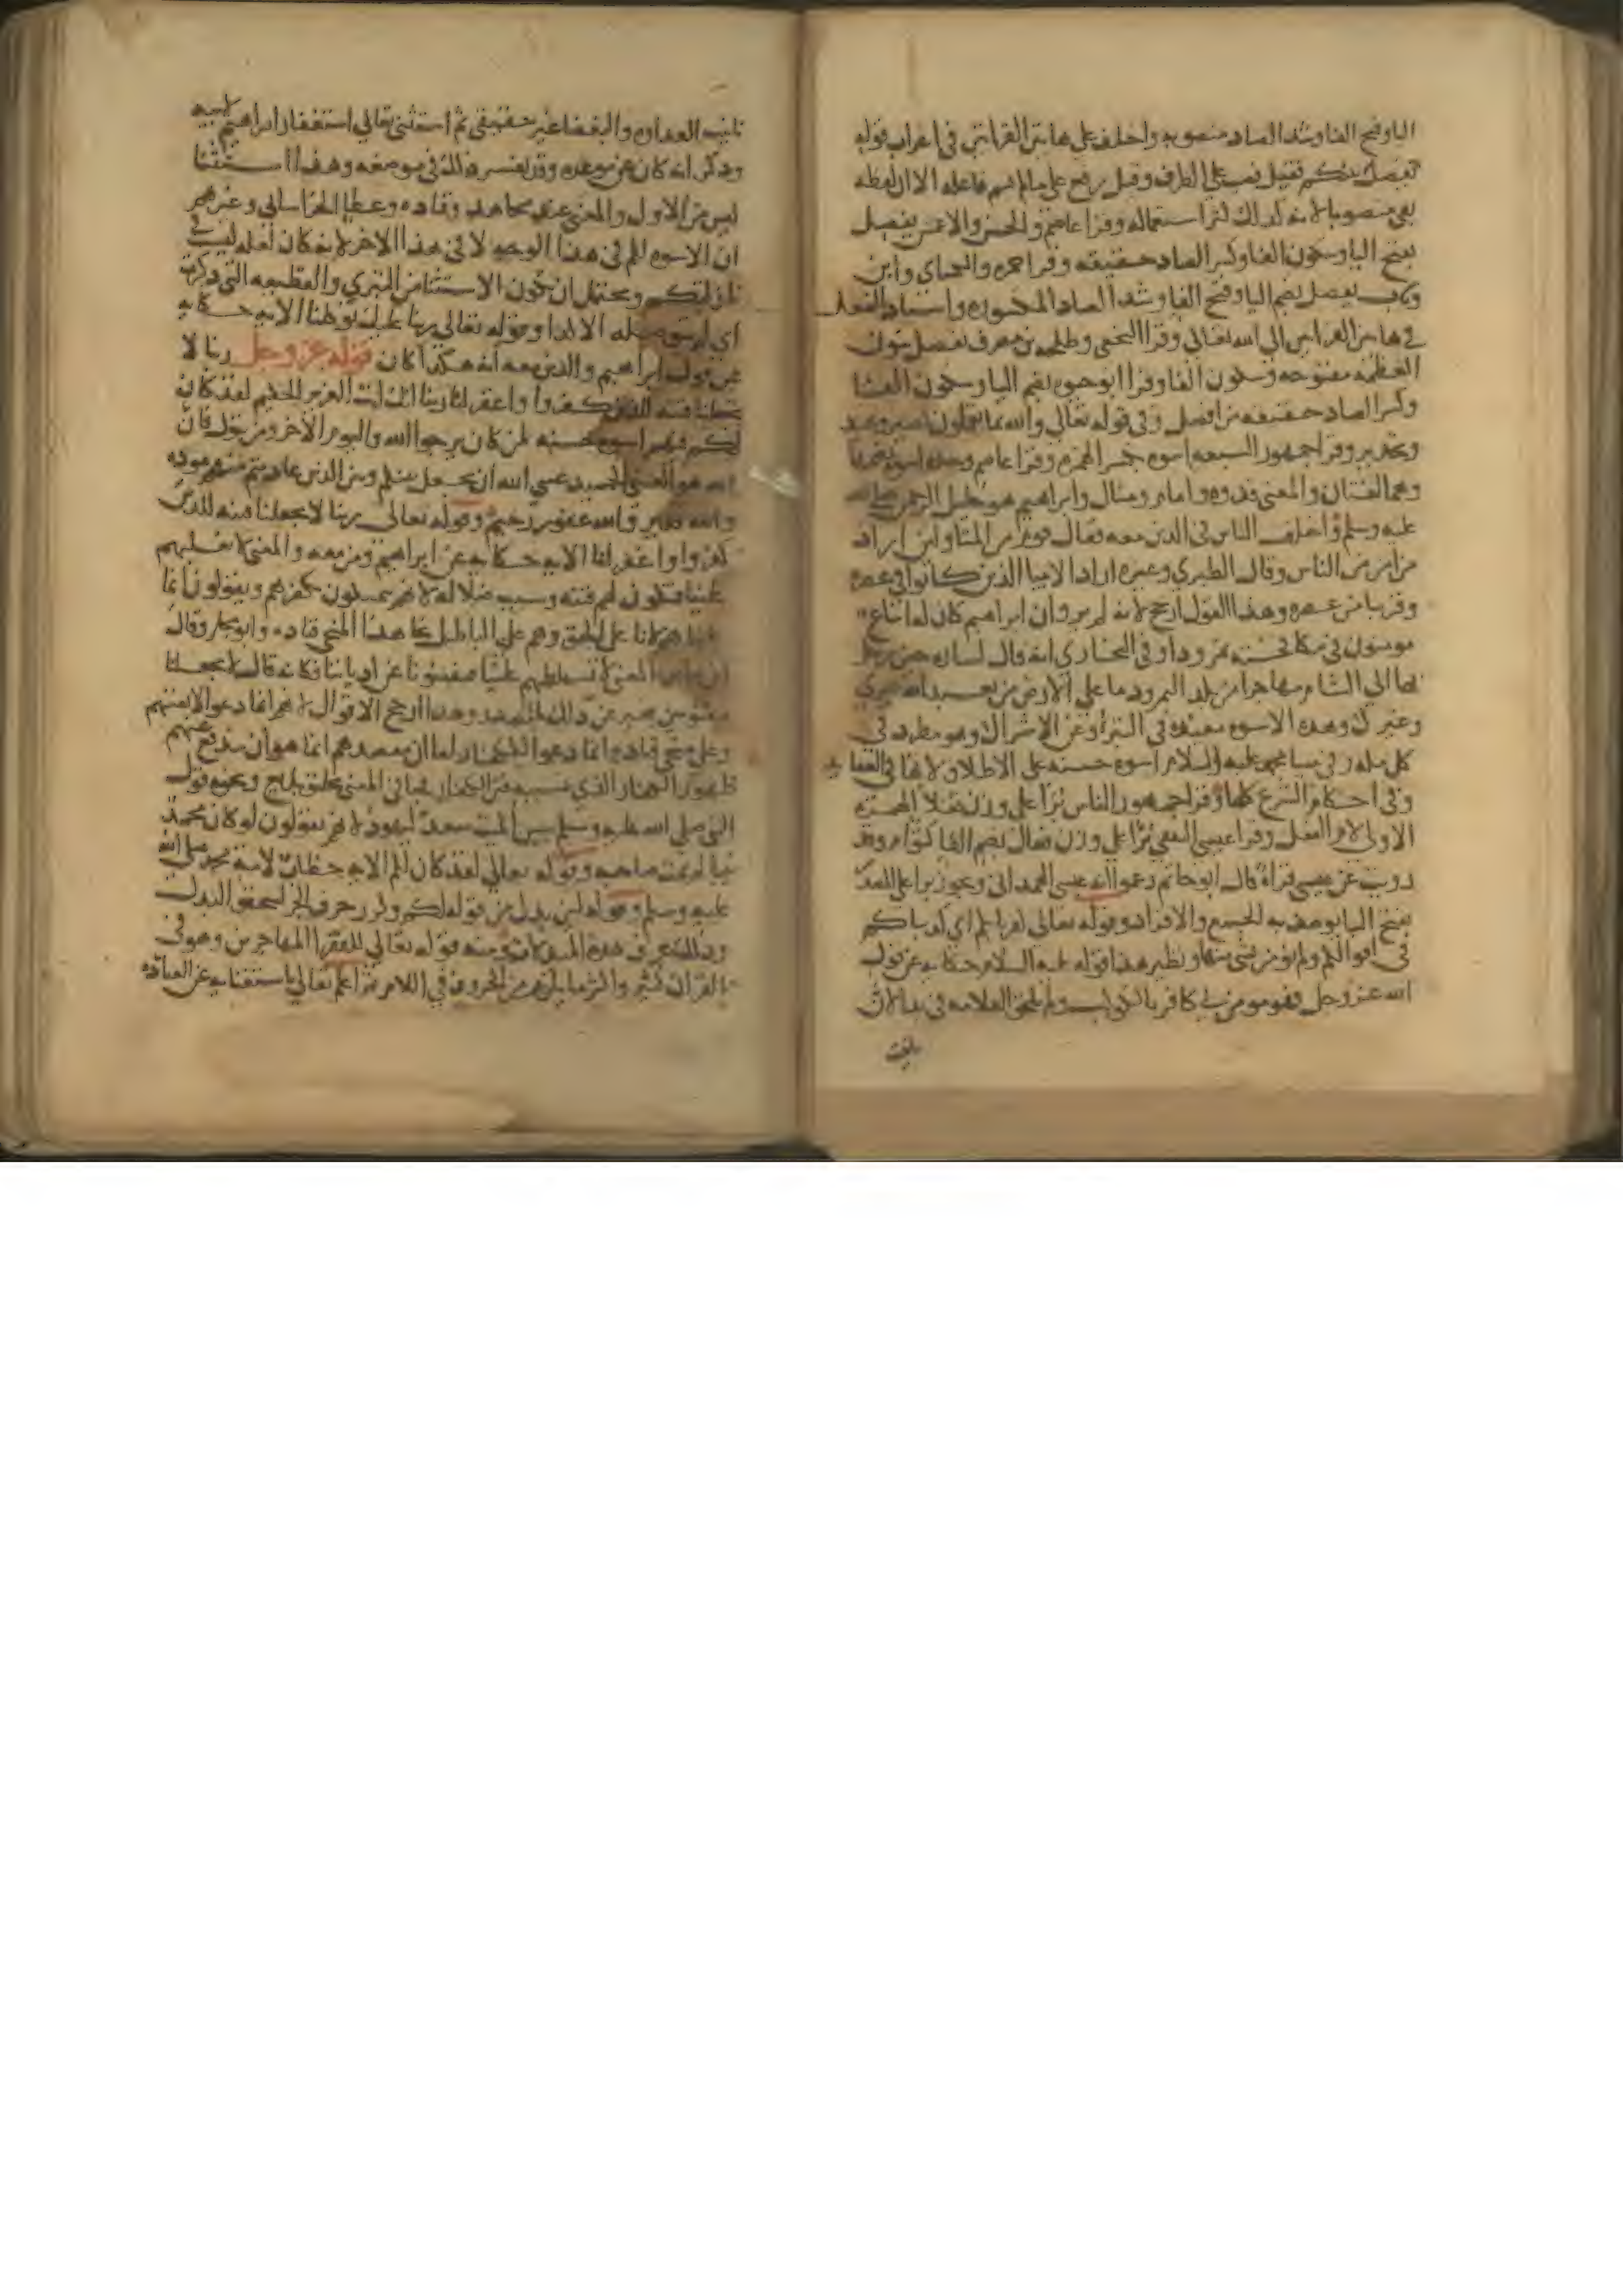 اليا وفتح الفا وشد الصاد منصوبه واختلف على هاتين القراتين في اعراب قوله
بينكم فقيل نصب على الظرف وقيل رفع على ما لم يسم فاعله الا ان لفظه
بقي منصوبا لانه كذلك كثر استعماله وقرا عاصم والحسن والاعمش يفصل
بفتح اليا وسكون الفا وكسر الصاد خفيفه وقرا حمزه والكساي وابن
وثاب يفصل بضم اليا وفتح الفا وشد الصاد المكسوره واسناد الفعل
في هاتين القراتين الى الله تعالى وقرا النخعي وطلحه بن مصرف نفصل بنون
العظمه مفتوحه وسكون الفا وقرا ابو حيوه بضم اليا وسكون الفا
وكسر الصاد خفيفه من افصل وفي قوله تعالى والله بما تعملون بصير وعيد
وتحذير وقرا جمهور السبعه اسوه بكسر الهمزه وقرا عاصم وحده اسوه بضمها
وهما لغتان والمعنى قدوه وامام ومثال وابراهيم هو خليل الرحمن صلى الله
عليه وسلم واختلف الناس في الذين معه فقال قوم من المتاولين اراد
من امن من الناس وقال الطبري وغيره اراد الانبيا الذين كانوا في عصره
وقريبا من عصره وهذا القول ارجح لانه لم يرو ان ابراهيم كان له اتباع
مومنون في مكافحته نمرودا وفي البخاري انه قال لساره حين رحل
بها الى الشام مهاجرا من بلد النمرود ما على الارض من يعبد الله غيري
وغيرك وهذه الاسوه مقيده في التبري عن الاشراك وهو مطرد في
كل مله وفي نبينا محمد عليه السلام اسوه حسنه على الاطلاق لانها في العقايد
وفي احكام الشرع كلها وقرا جمهور الناس براا على وزن فعلا الهمزه
الاولى لام الفعل وقرا عيسى الثقفي براا على وزن فعال بكسر الفا ككرام وقد
رويت عن عيسى قراة قال ابو حاتم زعموا انه عيسى الهمداني ويجوز براا على المصدر
بفتح البا يوصف به الجمع والافراد وقوله تعالى كفرنا بكم اي كذبناكم
في اقوالكم ولم نومن بشي منها ونظير هذا قوله عليه السلام حكاية عن قول
الله عز وجل فهو مومن بي كافر بالكوكب ولم تلحق العلامه في بدا لان
تانيث
تانيث العداوه والبغضا غير حقيقي ثم استثنى تعالى استغفار ابراهيم لابيه
وذكر انه كان عن موعده وقد تفسر ذلك في موضعه وهذا استثنا
ليس من الاول والمعنى عند مجاهد وقتاده وعطا الخراساني وغيرهم
ان الاسوه لكم في هذا الوجه لا في هذا الاخر لانه كان لعله ليست في
نازلتكم ويحتمل ان يكون الاستثنا من التبري والقطيعه التي ذكرت
اي لم تبق صله الا كذا وقوله تعالى ربنا عليك توكلنا الايه حكايه
عن قول ابراهيم والذين معه انه هكذا كان قوله عز وجل ربنا لا
تجعلنا فتنه للذين كفروا واغفر لنا ربنا انك انت العزيز الحكيم لقد كان
لكم فيهم اسوه حسنه لمن كان يرجوا الله واليوم الاخر ومن يتول فان
الله هو الغني الحميد عسى الله ان يجعل بينكم وبين الذين عاديتم منهم موده
والله قدير والله غفور رحيم وقوله تعالى ربنا لا تجعلنا فتنه للذين
كفروا واغفر لنا الايه حكايه عن ابراهيم ومن معه والمعنى لا تغلبهم
علينا فنكون لهم فتنه وسبب ضلاله لانهم يتمسكون بكفرهم ويقولون انما
غلبناهم لانا على الحق وهم على الباطل نحا هذا المنحى قتاده وابو مجلز وقال
ابن عباس المعنى لا تسلطهم علينا فيفتنونا عن ادياننا فكانه قال لا تجعلنا
مفتونين فعبر عن ذلك بالمصدر وهذا ارجح الاقوال لانهم انما دعوا لانفسهم
وعلى منحى قتاده انما دعوا للكفار اما ان مقصدهم انما هو ان يندفع عنهم
ظهور الكفار الذي بسببه فتن الكفار فجا في المعنى تحليق بليغ ونحوه قول
النبي صلى الله عليه وسلم بيس الميت سعد ليهود لانهم يقولون لو كان محمد
نبيا لم يمت صاحبه وقوله تعالى لقد كان لكم الايه خطاب لامة محمد صلى الله
عليه وسلم وقوله لمن بدل من قوله لكم وكرر حرف الجر ليتحقق البدل
وذلك عرف هذه المبدلات ومنه قوله تعالى للفقرا المهاجرين وهو في
القران كثير واكثر ما يلزم من الحروف في اللام ثم اعلم تعالى باستغنايه عن العباد